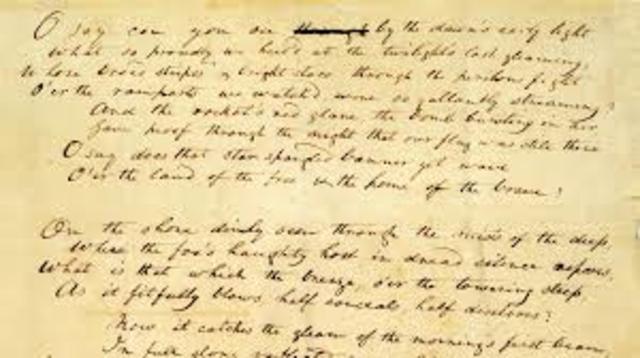 O say can you see by the dawn's early light
What so proudly we hail'd at the twilight's last gleaming,
Whose broad stripes & bright stars through the perilous fight
O'er the ramparts we watch'd, were so gallantly streaming?
And the rocket's red glare, the bomb bursting in air,
Gave proof through the night that our flag was still there
O say does that star spangled banner yet wave
O'er the land of the free & the home of the brave?
On the shore dimly seen through the mists of the deep,
Where the foe's haughty host in dread silence reposes,
What is that which the breeze, o'er the towering steep,
As it fitfully blows, half conceals, half discloses?
Now it catches the gleam of the morning's first beam,
In full glory reflected